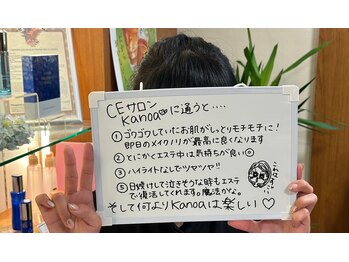 CEサロン
Kanoa♡に通うと‥‥
①ゴワゴワしていたお肌がしっとりモチモチに！
即日のメイクノリが最高に良くなります
②とにかくエステ中は気持ちが良い◎
③ハイライトなしでツヤッツヤ!!
⑤日焼けして泣きそうな時もエステ
で復活してくれます。魔法かな。
そして何よりKanoaは楽しい♡